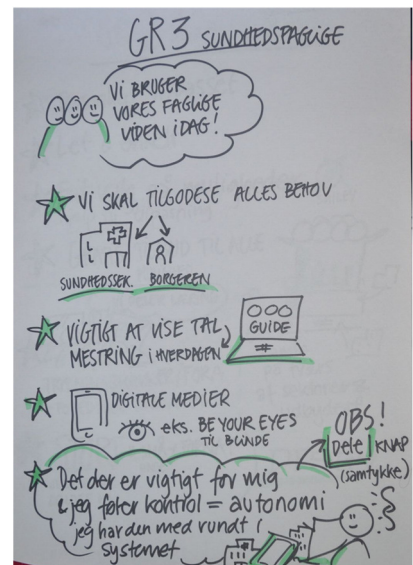 GR3 SUNDHEDSFAGLIGE
Vi BRUGER
VORES FAGLIGE
VIDEN i DAG!
Vi SKAL TILGODESE ALLES BEHOV
SUNDHEDSSEK. BORGEREN
VIGTIGT AT VISE TAL
MESTRING i HVERDAGEN
GUIDE
DIGITALE MEDIER
eks. BE YOUR EYES
TIL BLINDE
OBS!
Dele KNAP
(samtykke)
Det der er vigtigt for mig
& jeg føler kontrol = autonomi
jeg har den med rundt i
systemet